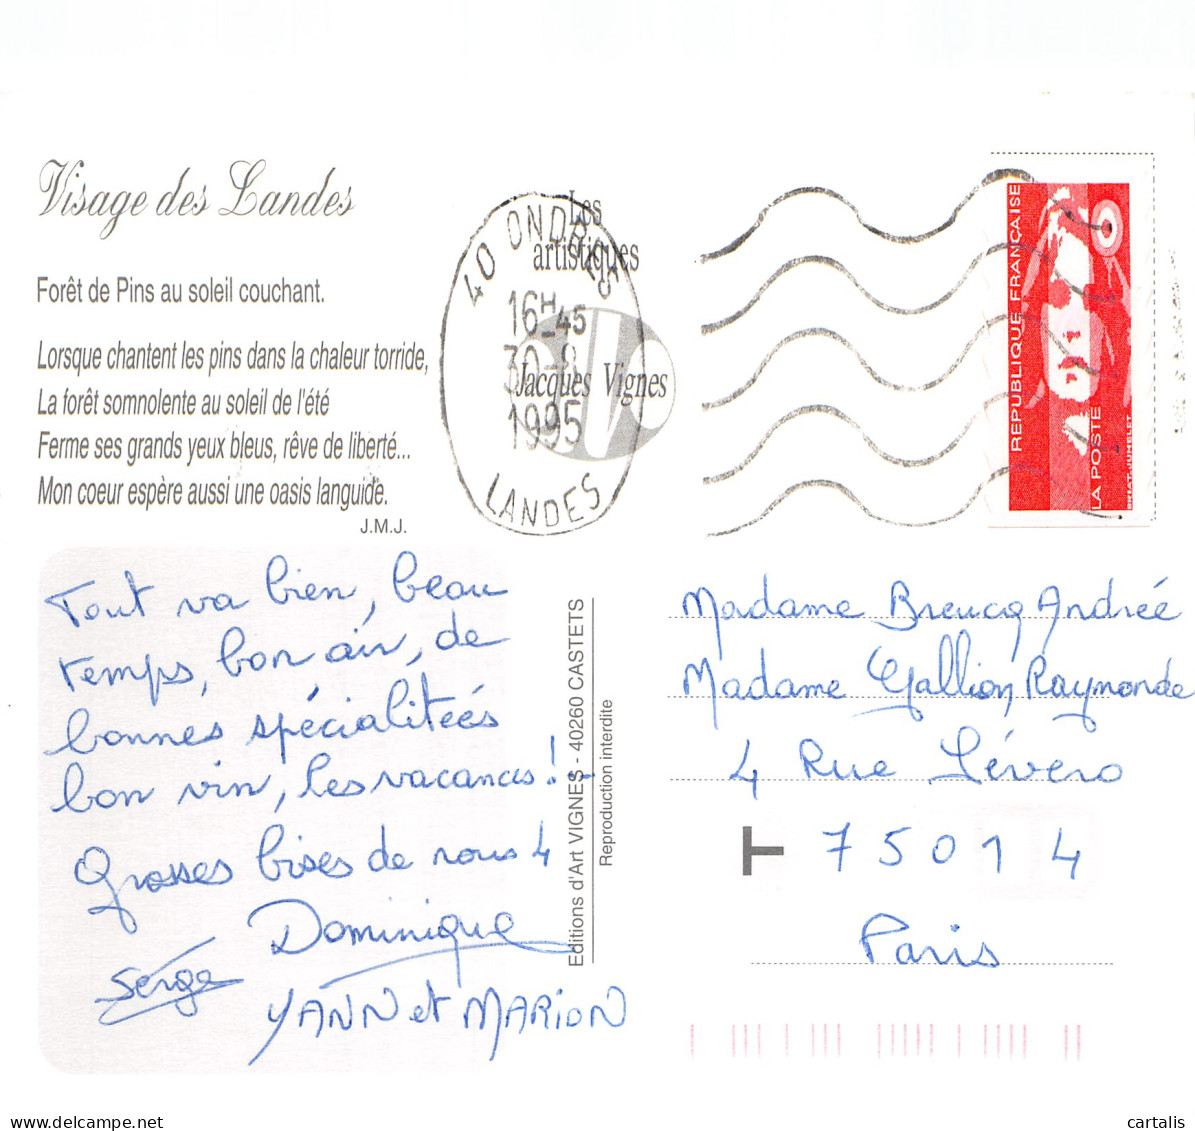 Visage des Landes
Forêt de Pins au soleil couchant.
Lorsque chantent les pins dans la chaleur torride,
La forêt somnolente au soleil de l'été
Ferme ses grands yeux bleus, rêve de liberté...
Mon coeur espère aussi une oasis languide.
J.M.J.
Les
artistiques
Jacques Vignes
40 ONDRES
16H-45
1995
LANDES
REPUBLIQUE FRANÇAISE
LA POSTE
BRIAT-JUMELET
Tout va bien, beau
temps, bon air, de
bonnes spécialiteés
bon vin, les vacances!
Grosses bises de nous 4
Dominique
Serge
YANN et MARION
Editions d'Art VIGNES - 40260 CASTETS
Reproduction interdite
Madame Breucq Andrée
Madame Gallion Raymonde
4 Rue Sévero
T 75014
Paris
delcampe.net
cartalis